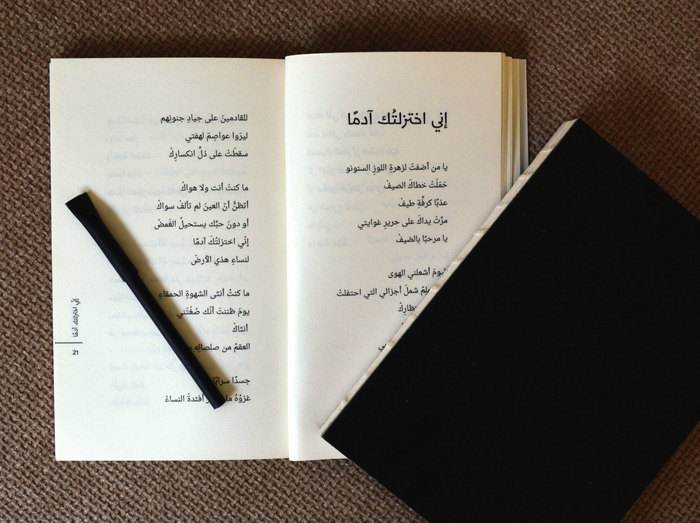 إني اختزلتُك آدمًا
يا من أضفتَ لزهرةِ اللوزِ السنونو
حَمَلَتْ خطاكَ الصيفْ
عذبًا كرفَّةِ طيفْ
مرَّتْ يداكَ على حريرِ غوايتي
يا مرحبًا بالضيفْ
أشعلني الهوى
شملَ أجزائي التي احتفلتْ
للقادمينَ على جيادِ جنونِهم
ليرَوا عواصِمَ لهفتي
سقطَتْ على ذلِّ انكسارِكْ
ما كنتُ أنت ولا هواكْ
أتظنُّ أنّ العينَ لم تألفْ سواكْ
أو دونَ حبِّك يستحيلُ الغَمضْ
إنّي اختزلتُكَ آدمًا
لنساءِ هذي الأرضْ
ما كنتُ أنثى الشهوةِ الحمقاءِ
يومَ ظننتَ أنّك صُغْتَني
أنثاكْ
العقمُ من صلصالِهِ
جسدًا سرابًا
غزوُهُ أفئدةُ النساءْ
إنّي اختزلتك آدمًا
21